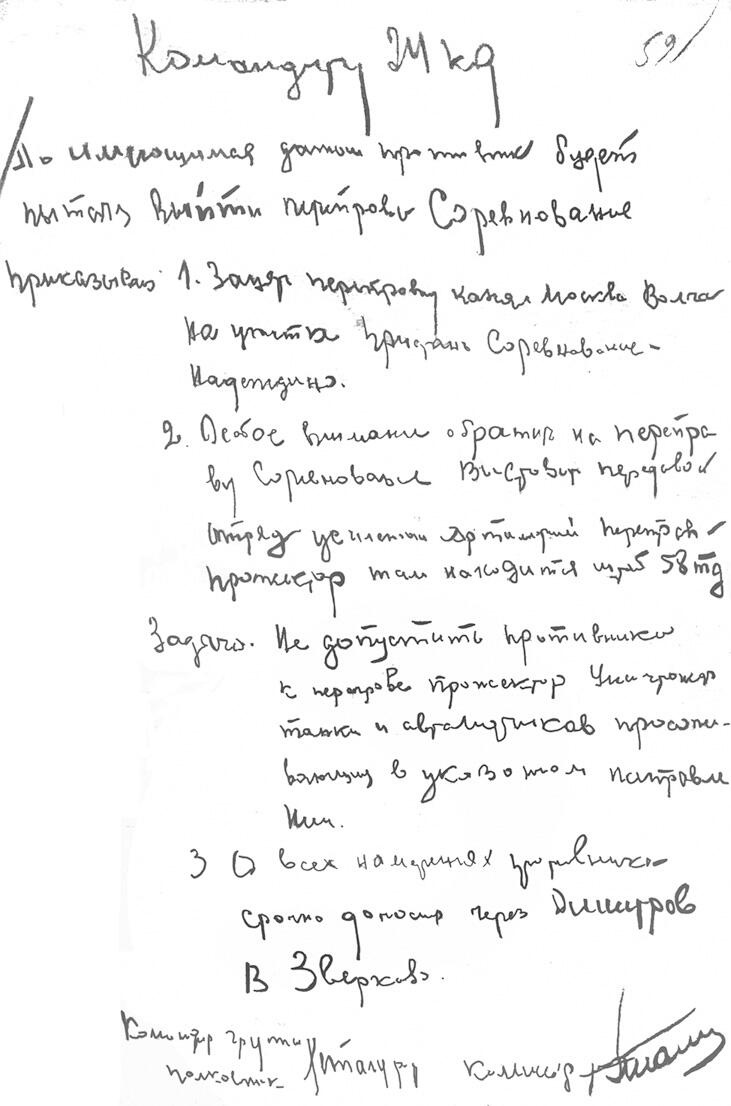 Командиру 24 кд
59
По имеющимся данным противник будет
пытать выйти переправы Соревнование
Приказываю 1. Занять переправу канал Москва Волга
на участке Соревнование-
Надеждино.
2. Особое внимание обратить на перепра
ву Соревнование Выставить передовой
отряд усиленный артиллерией переправ
прожектор там находится штаб 58 тд
Задача. Не допустить противника
к переправе прожектор Уничтожать
танки и автоматчиков просачи-
вающих в указанном направле
нии.
3 О всех намерениях противника
срочно доносить через Дмитров
в Зверково.
Командир группы
полковник
комиссар